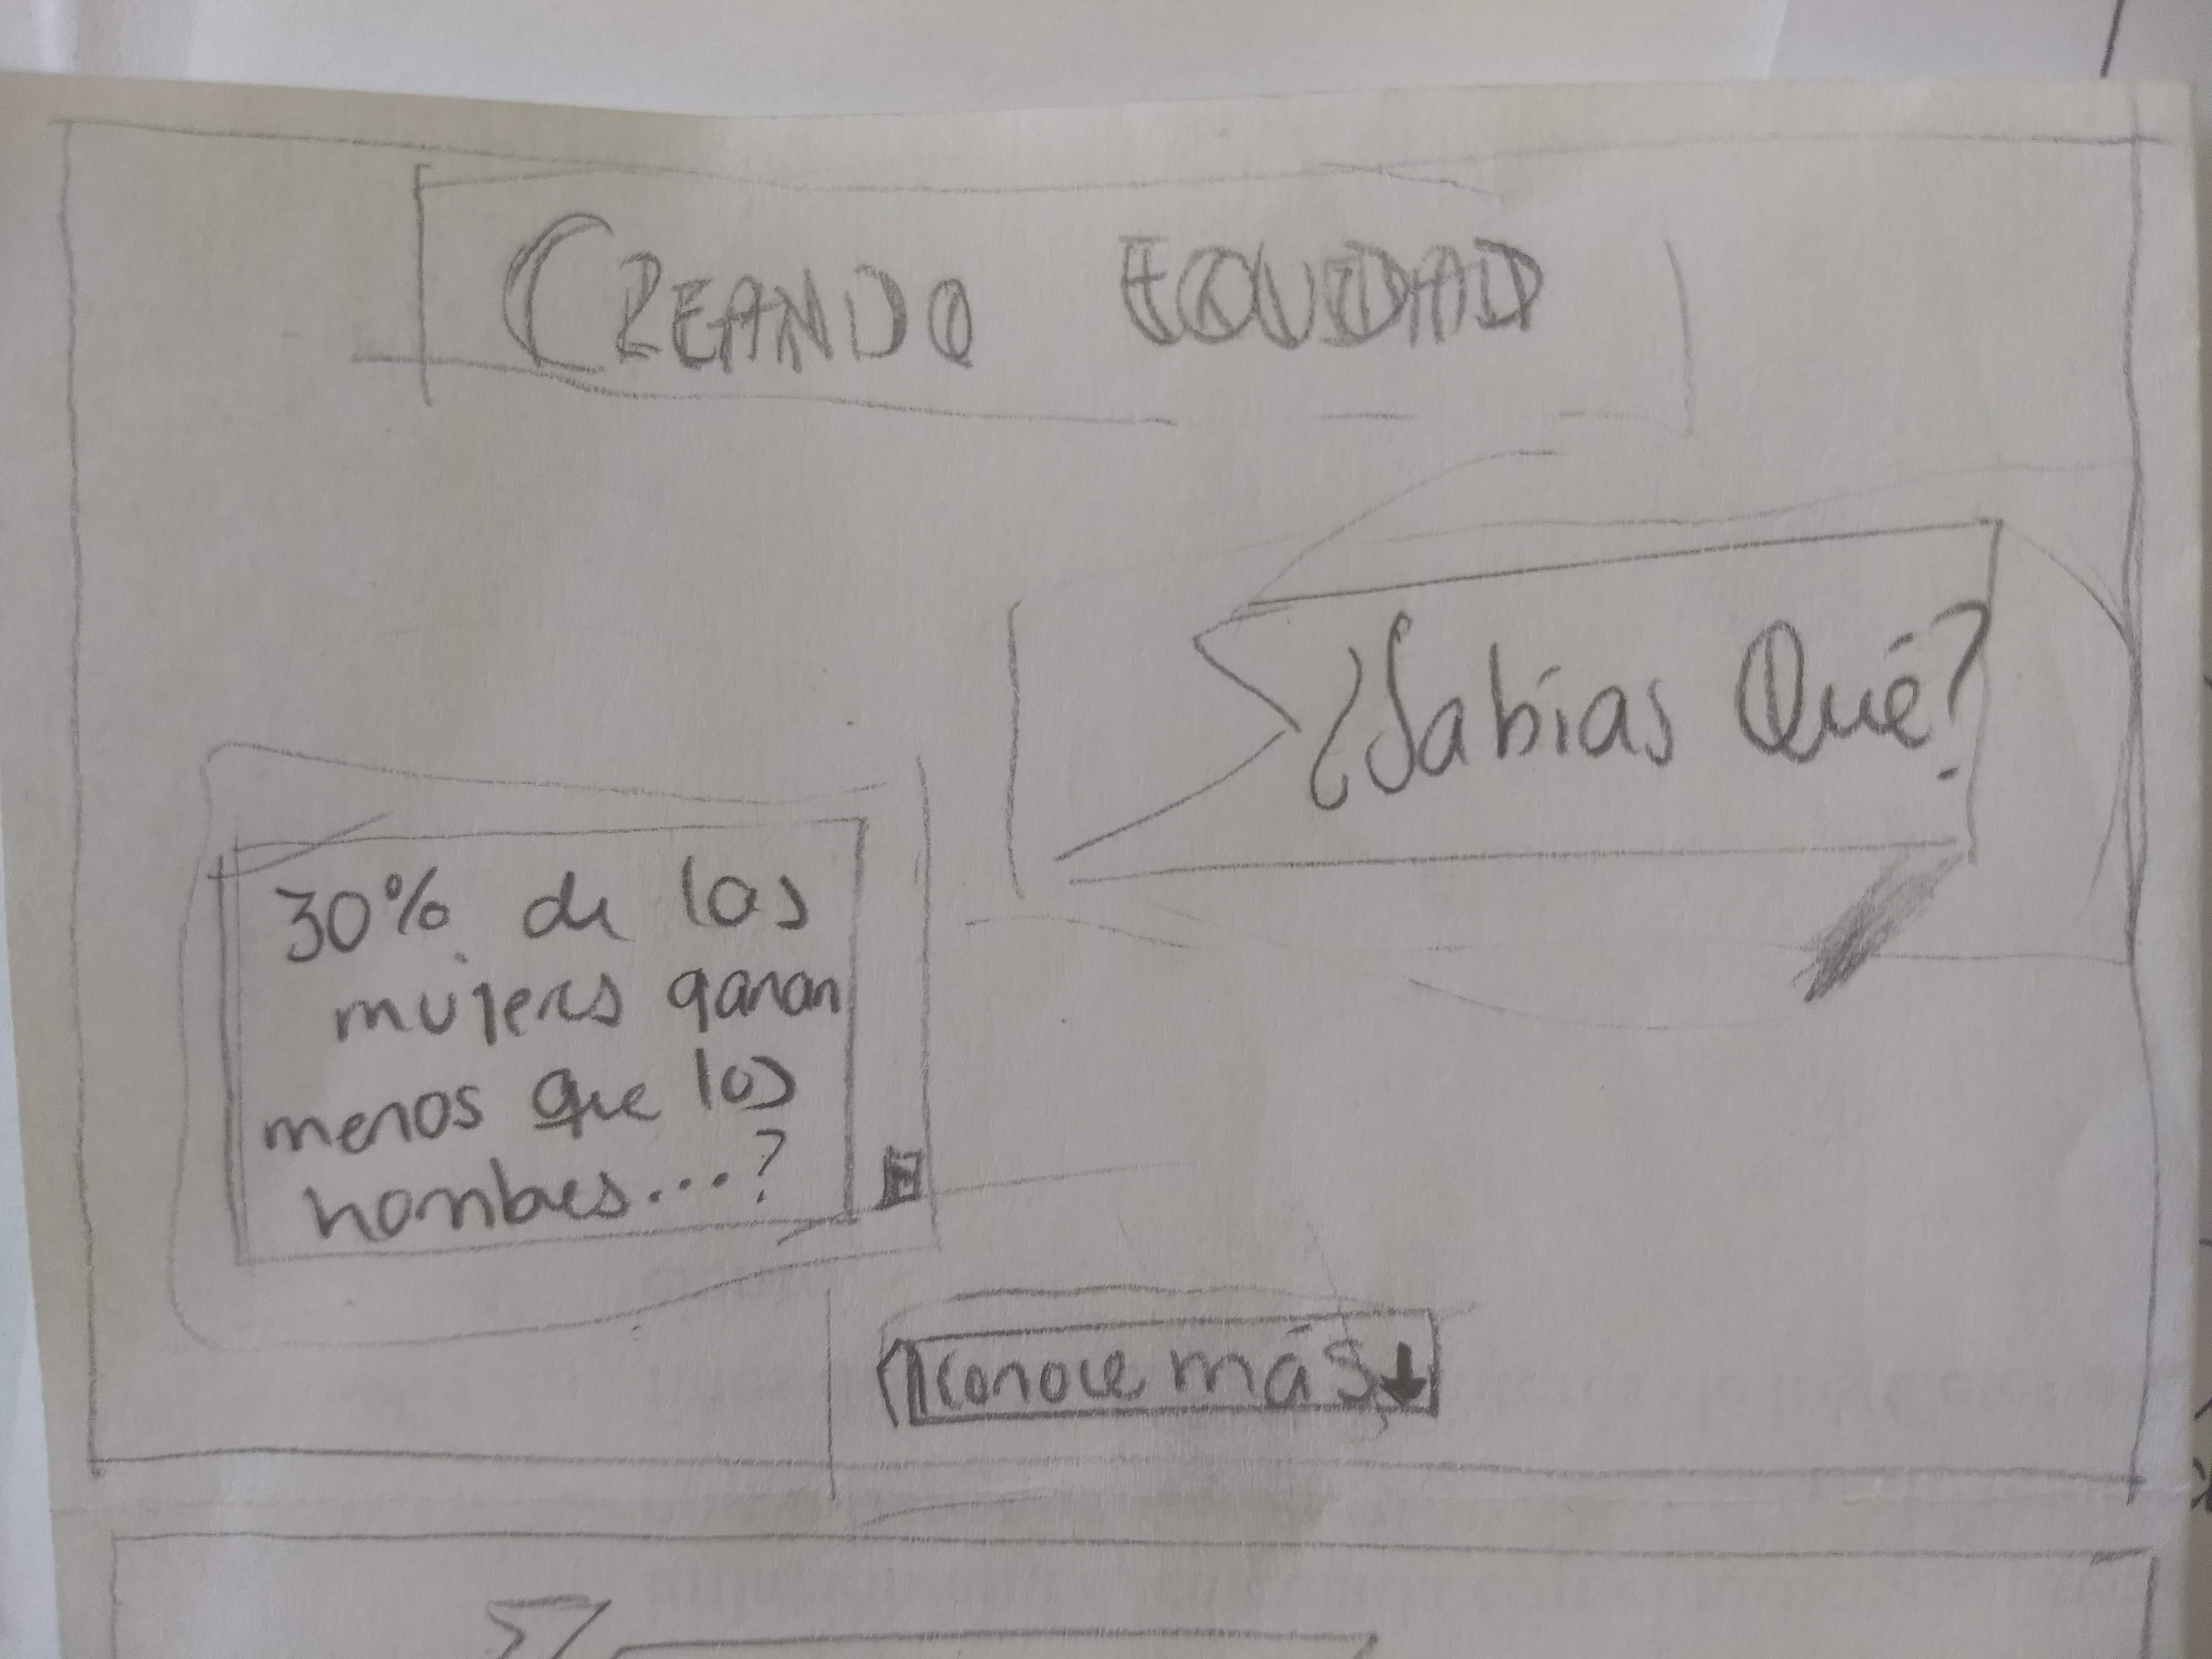 CREANDO EQUIDAD
¿Sabías Qué?
30% de las
mujeres ganan
menos que los
hombres...?
conoce más